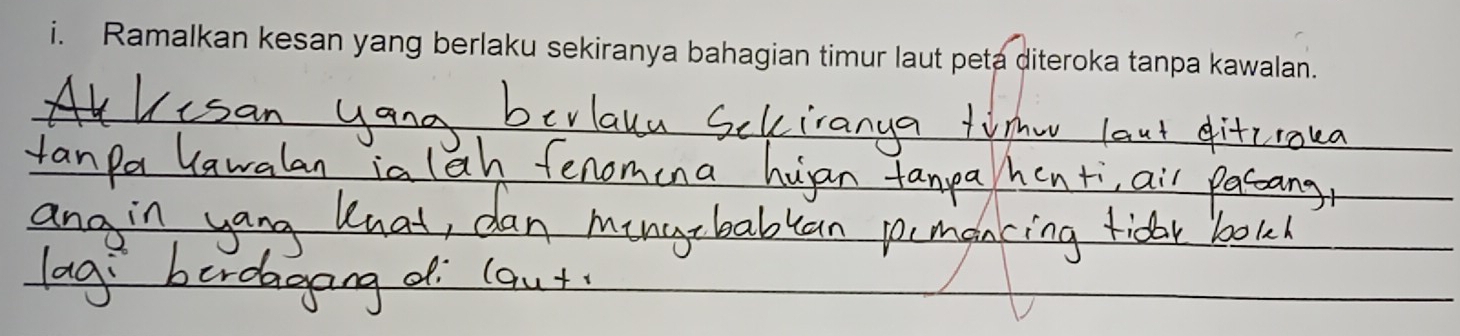 i. Ramalkan kesan yang berlaku sekiranya bahagian timur laut peta diteroka tanpa kawalan.
Kesan yang berlaku sekiranya timur laut diteroka
tanpa kawalan ialah fenomena hujan tanpa henti, air pasang,
angin yang kuat, dan mengebabkan pemancing tidak boleh
lagi berdagang di laut.